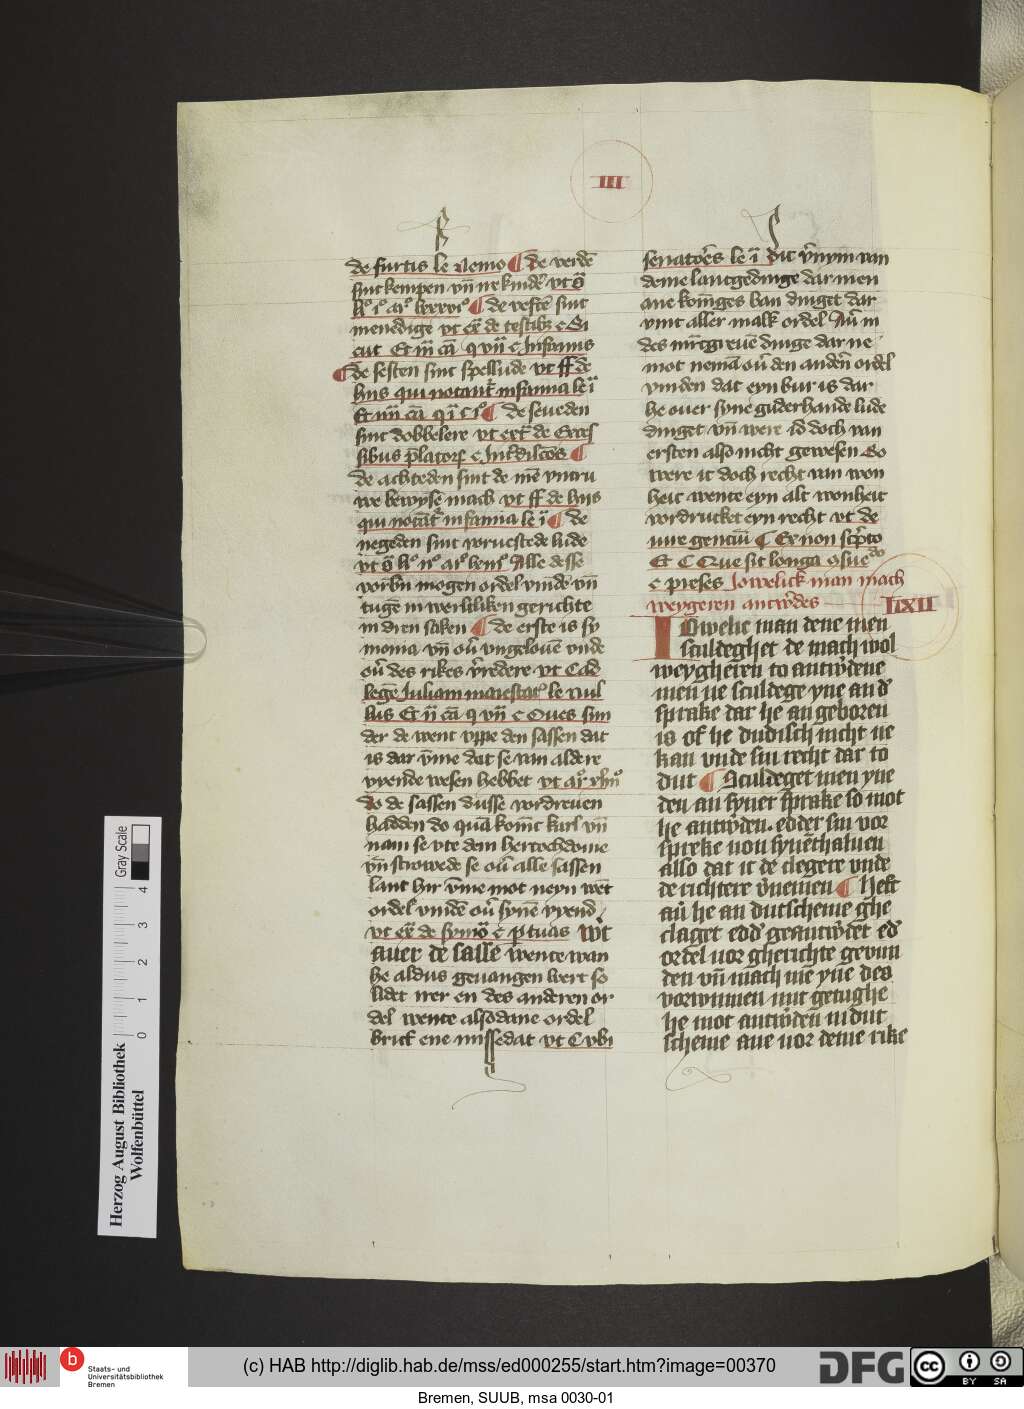 III
R
S
de furtis le Nemo ¶ De verdē
sint kempen vn̄ ere kindeꝛ vt
¶ de vefte sint
menedige vt
cut Et
¶ de sesten sint spellude vt ff de
hiis qui notant̄ infamia le i
¶ de seueden
sint dobbelere vt
de achteden sint de mē vntru
we bewyse mach vt ff de hiis
qui notāt infamia le i ¶ de
negeden sint vorvestede lude
Alle desse
vorbn̄ mogen ordel vindē vn̄
tugē in werliken gerichte
in dren saken ¶ de erste is sy
monia vn̄ oū vngelouē vnde
oū des rikes v̄redere vt Ead
legē Iuliam maiestat le Nul
lus Et
der de went vppe den sassen dat
is dar v̄me dat se van aldere
vryende wesen hebbet vt
do de sassen dusse vordreuen
hadden do quā konīc karl vn̄
nam se vte dem hertochdome
vn̄ strowede se oū alle sassen
lant hir v̄me mot neyn wēt
ordel vindē oū synē vyend
vt de
auer de salle wente wan
he aldus geuangen wert so
lidet
del wente alsodane ordel
brict ene missedat vt C vbi
senatoēs le i Dit
deme lantgedinge dar men
ane koninges ban dinget dar
vint aller malk ordel Aū in
des mrcgreuē dinge dar ne
mot nemā oū den andēn ordel
vinden dat eyn bur is dar
he ouer syne guderhande lude
dinget vn̄ were id doch van
ersten also nicht gewesen So
were it doch recht van won
heit wente eyn alt wonheit
vordrucket eyn recht vt de
iure gentiū C Ex non sc̄pto
Et C Que sit longa
c preses Iowelick man mach
weygeren antw̄des
LXII
IOwelic man deme men
sculdeghet de mach wol
weygheren to antw̄dene
men ne sculdege yne an d̄
sprake dar he an geboren
is of he dudisch nicht ne
kan vnde sin recht dar to
dut ¶ Sculdeget men yne
den an syner sprake so mot
he antw̄den. edder sin vor
spreke von synēthaluen
also dat it de clegere vnde
de richtere v̄nemen ¶ Heft
aū he an dutscheme ghe
claget edd̄ geantw̄det ed̄
ordel vor gherichte gevun
den vn̄ mach me yne des
vorwinnen mit getughe
he mot antw̄den in dut
scheme ane vor deme rike
Gray Scale
0 1 2 3 4
Herzog August Bibliothek
Wolfenbüttel
b
Staats- und
Universitätsbibliothek
Bremen
(c) HAB http://diglib.hab.de/mss/ed000255/start.htm?image=00370
DFG
cc BY SA
Bremen, SUUB, msa 0030-01